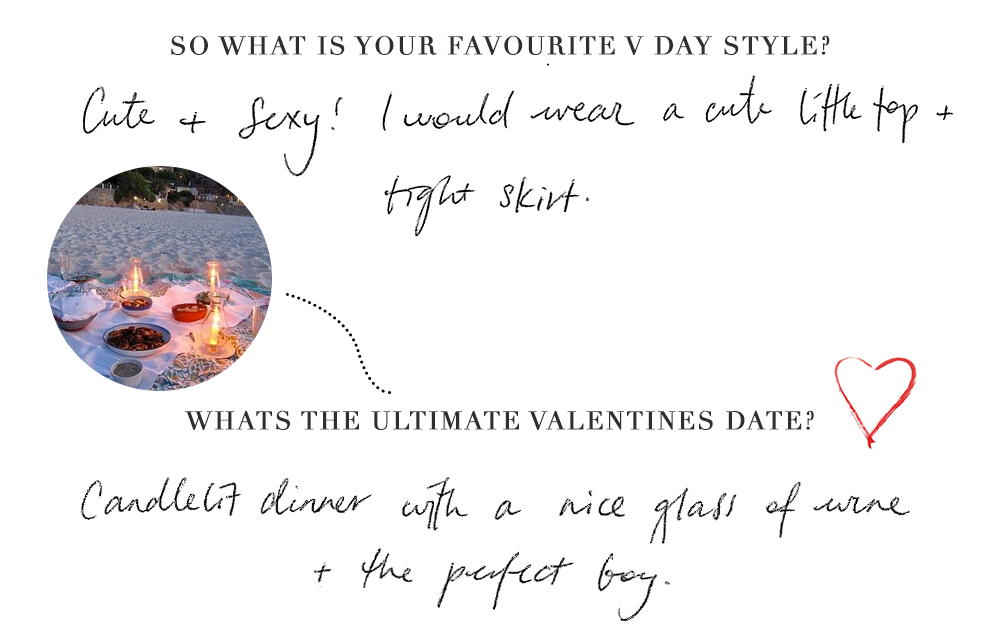 SO WHAT IS YOUR FAVOURITE V DAY STYLE?
Cute + Sexy! I would wear a cute little top +
tight skirt.
WHATS THE ULTIMATE VALENTINES DATE?
Candlelit dinner with a nice glass of wine
+ the perfect boy.